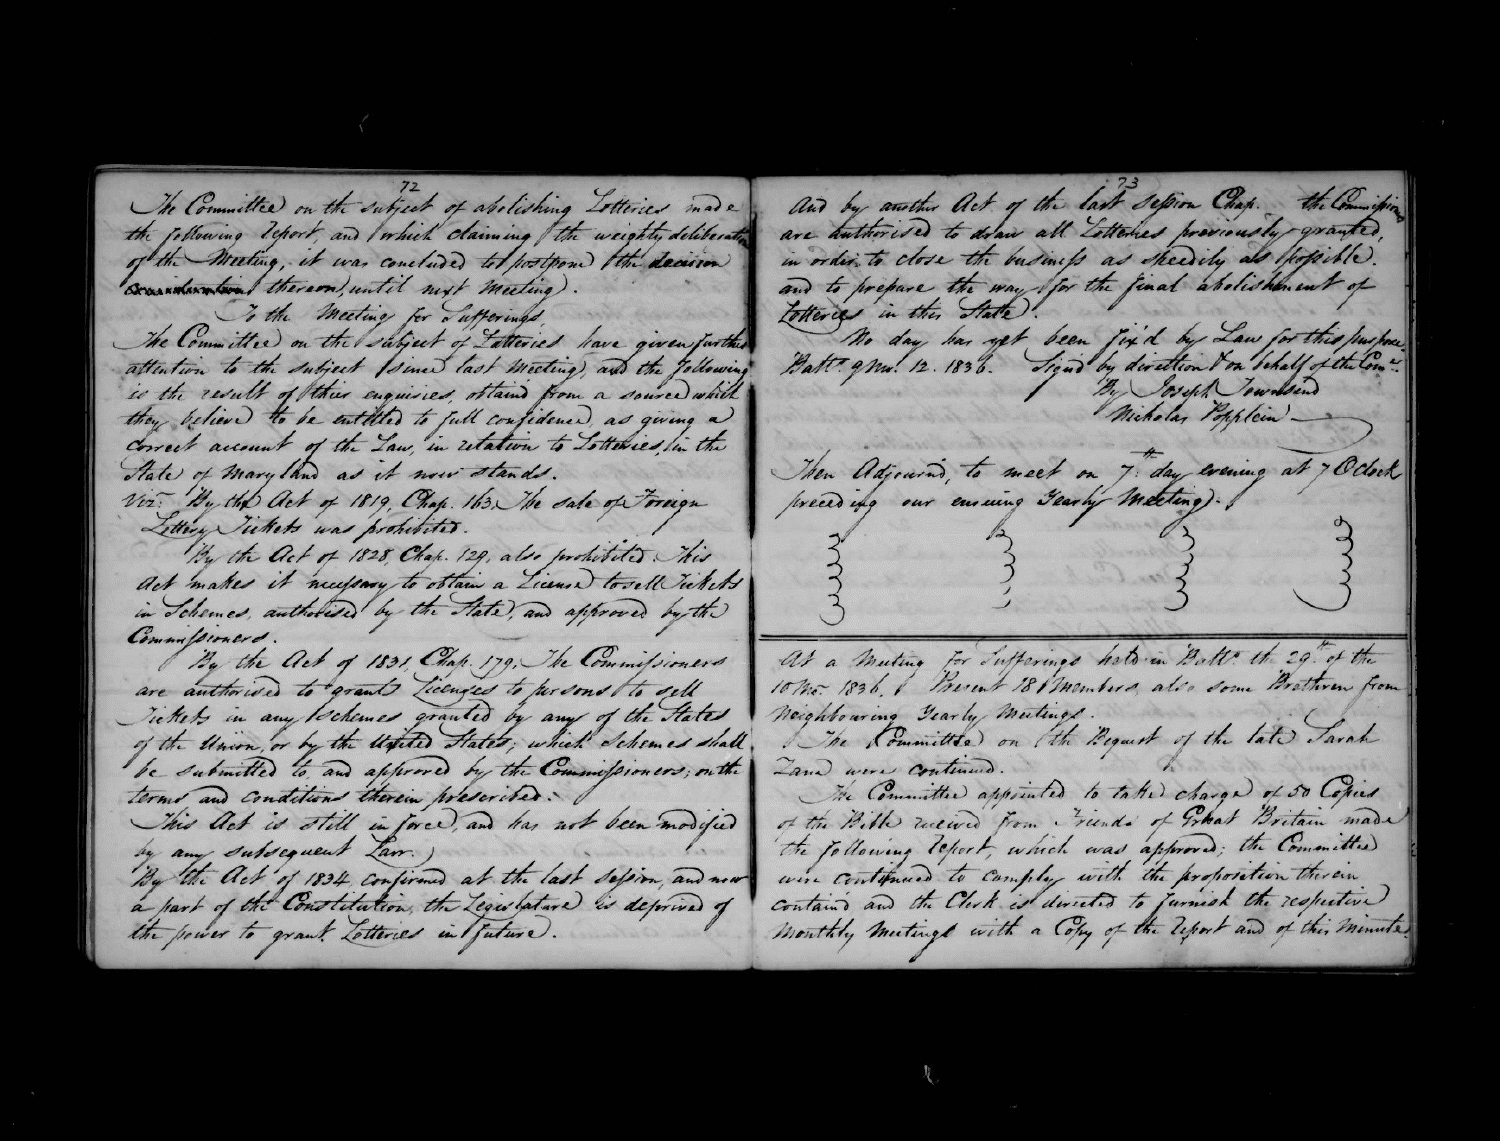 72
The Committee on the subject of abolishing Lotteries made
the following report, and which claiming the weighty deliberation
of the Meeting, it was concluded to postpone the decision
thereon, until next Meeting.
To the Meeting for Sufferings,
The Committee on the subject of Lotteries have given further
attention to the subject since last Meeting, and the following
is the result of their enquiries, obtaind from a source which
they believe to be entitled to full confidence, as giving a
correct account of the Law, in relation to Lotteries, in the
State of Maryland as it now stands.
Vizt. By the Act of 1819, Chap. 163. The sale of Foreign
Lottery Tickets was prohibited.
By the Act of 1828, Chap. 129, also prohibited. This
Act makes it necessary to obtain a License to sell Tickets
in Schemes, authorised by the State, and approved by the
Commissioners.
By the Act of 1831, Chap. 179, The Commissioners
are authorised to grant Licenses to persons to sell
Tickets in any Schemes granted by any of the States
of the Union, or by the United States; which Schemes shall
be submitted to, and approved by the Commissioners; on the
terms and conditions therein prescribed.
This Act is still in force, and has not been modified
by any subsequent Law.
By the Act of 1834, confirmed at the last session, and now
a part of the Constitution, the Legislature is deprived of
the power to grant Lotteries in future.
73
And by another Act of the last Session Chap. the Commissioners
are authorised to draw all Lotteries previously granted,
in order to close the business as speedily as possible.
and to prepare the way for the final abolishment of
Lotteries in this State.
No day has yet been fix'd by Law for this purpose.
Balto. 9 Mo. 12. 1836. Sign'd by direction & on behalf of the Come.
By Joseph Townsend
Nicholas Popplein
Then Adjourn'd, to meet on 7th day evening at 7 OClock
preceding our ensuing Yearly Meeting.
At a Meeting for Sufferings held in Balto. the 29th of the
10 Mo. 1836. Present 18 Members, also some Brethren from
Neighbouring Yearly Meetings.
The Committee on the Bequest of the late Sarah
Zane were continued.
The Committee appointed to take charge of 50 Copies
of the Bible received from Friends of Great Britain made
the following report, which was approved; the Committee
were continued to comply with the proposition therein
containd and the Clerk is directed to furnish the respective
Monthly Meetings with a Copy of the report and of this Minute.